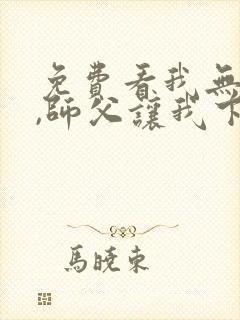 免費看我無
,師父讓我下
馬曉東